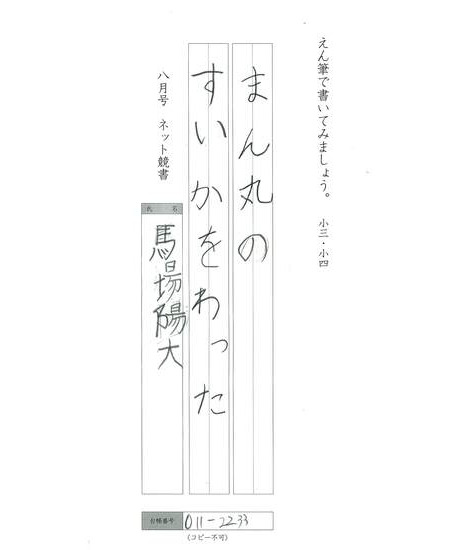 えん筆で書いてみましょう。 小三・小四
まん丸の
すいかをわった
八月号 ネット競書
氏名
馬場陽大
台帳番号 011-2233
(コピー不可)